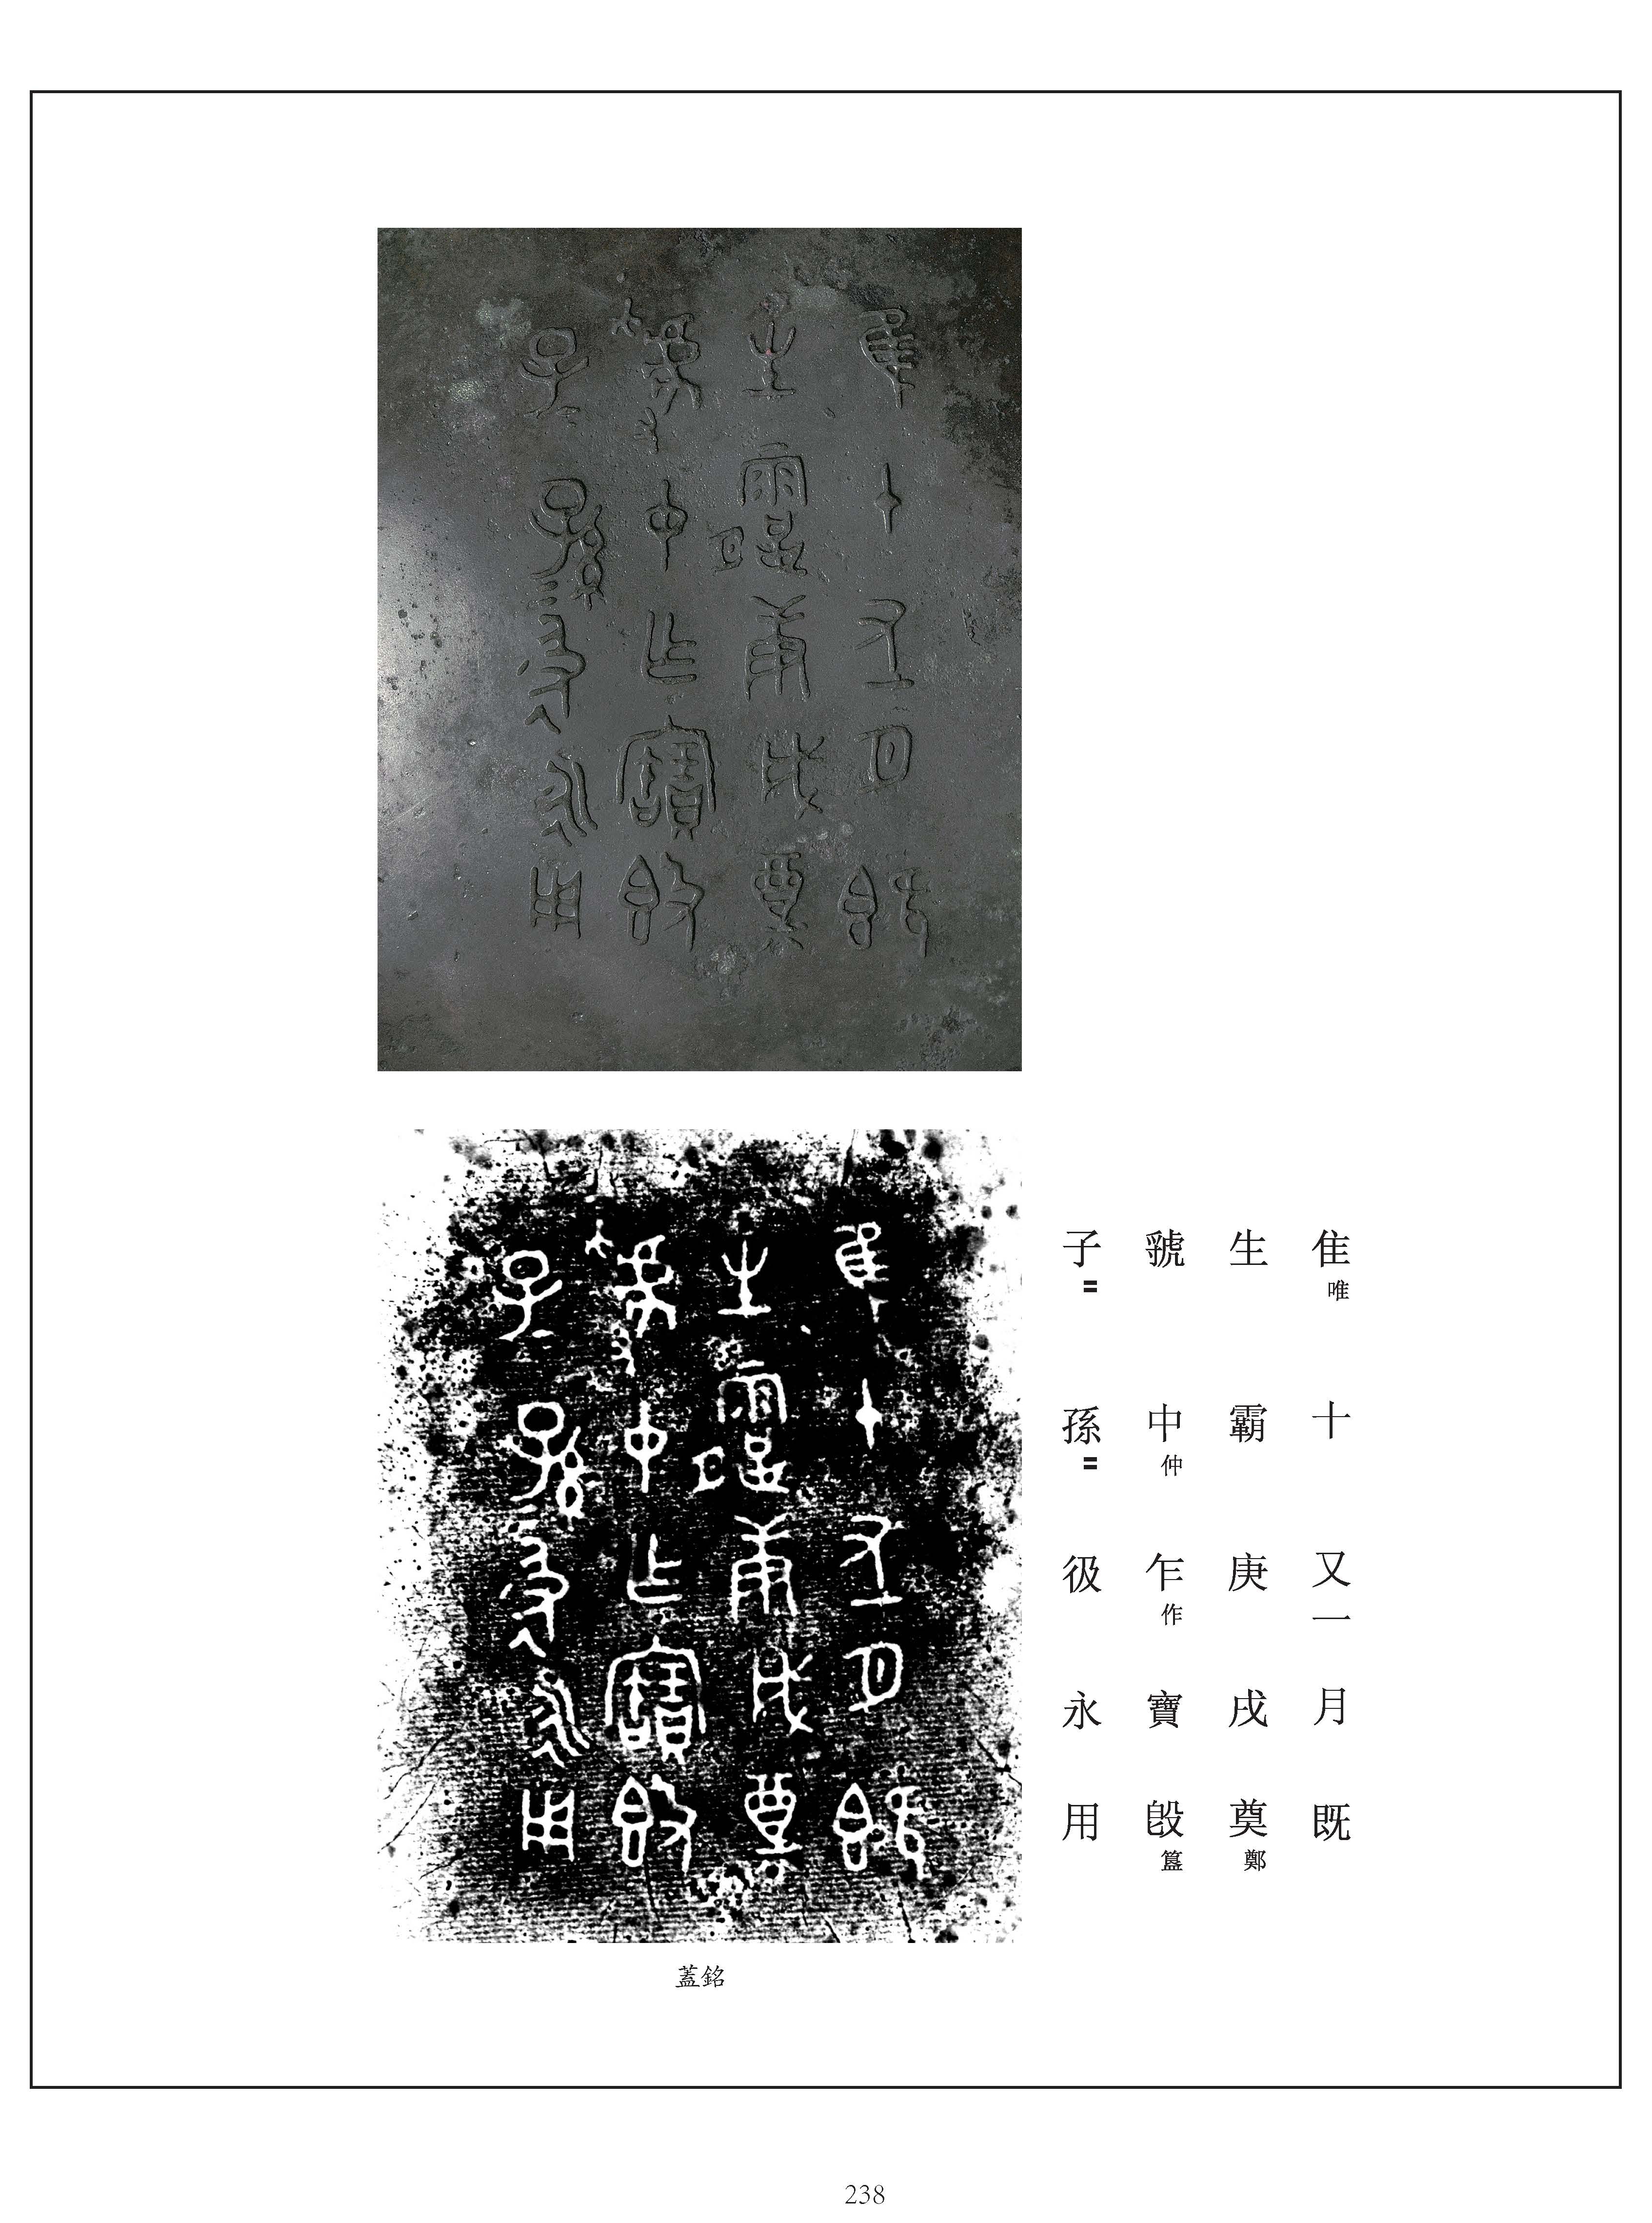 隹唯十又一月既
生霸庚戌奠鄭
虢中仲乍作寶𣪘簋
子〓孫〓彶永用
蓋銘
238